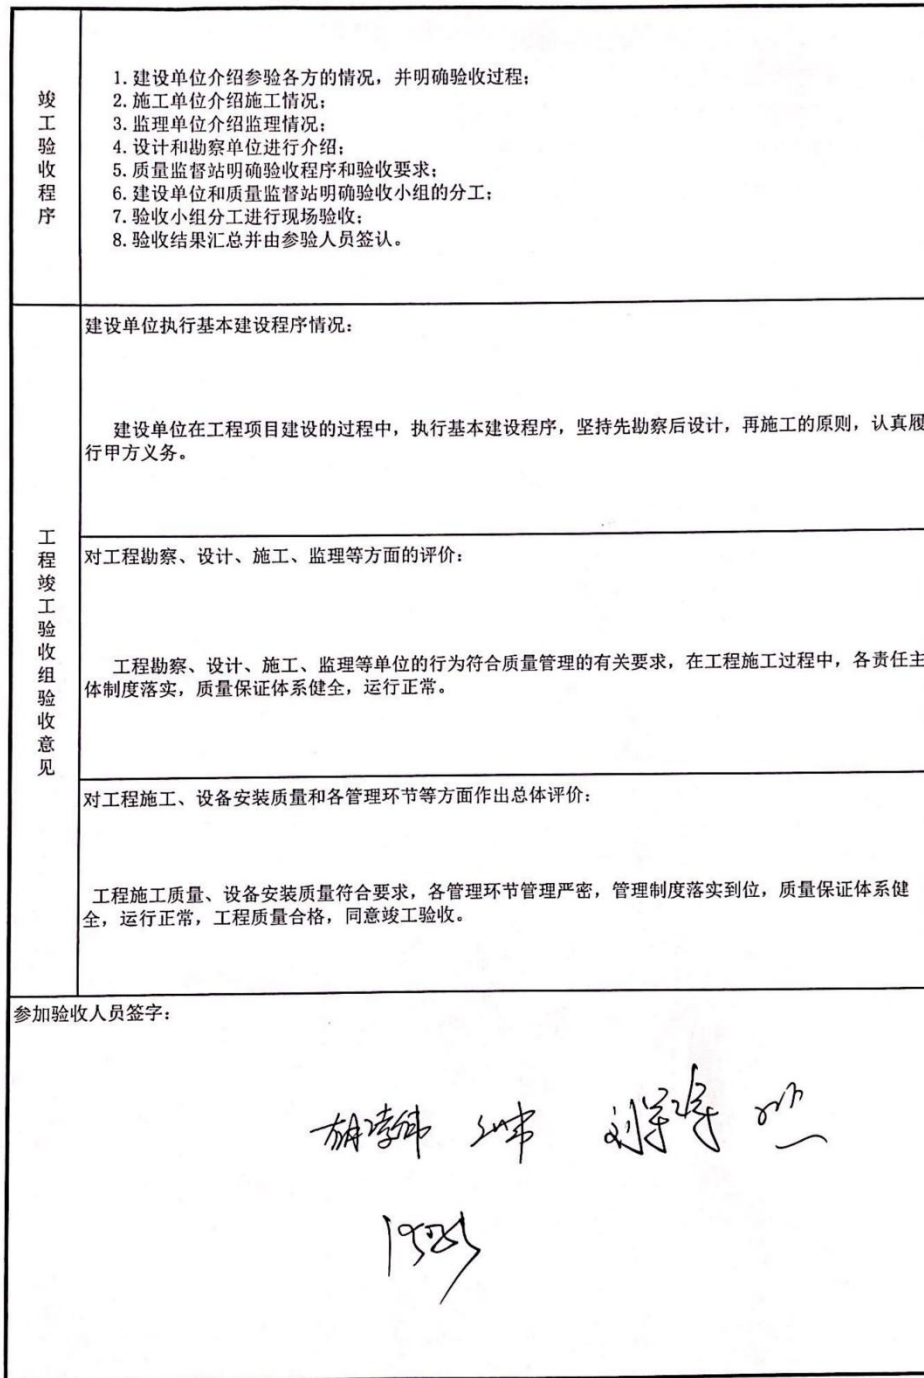 竣工验收程序
1.建设单位介绍参验各方的情况，并明确验收过程；
2.施工单位介绍施工情况；
3.监理单位介绍监理情况；
4.设计和勘察单位进行介绍；
5.质量监督站明确验收程序和验收要求；
6.建设单位和质量监督站明确验收小组的分工；
7.验收小组分工进行现场验收；
8.验收结果汇总并由参验人员签认。
工程竣工验收组验收意见
建设单位执行基本建设程序情况：
建设单位在工程项目建设的过程中，执行基本建设程序，坚持先勘察后设计，再施工的原则，认真履
行甲方义务。
对工程勘察、设计、施工、监理等方面的评价：
工程勘察、设计、施工、监理等单位的行为符合质量管理的有关要求，在工程施工过程中，各责任主
体制度落实，质量保证体系健全，运行正常。
对工程施工、设备安装质量和各管理环节等方面作出总体评价：
工程施工质量、设备安装质量符合要求，各管理环节管理严密，管理制度落实到位，质量保证体系健
全，运行正常，工程质量合格，同意竣工验收。
参加验收人员签字：